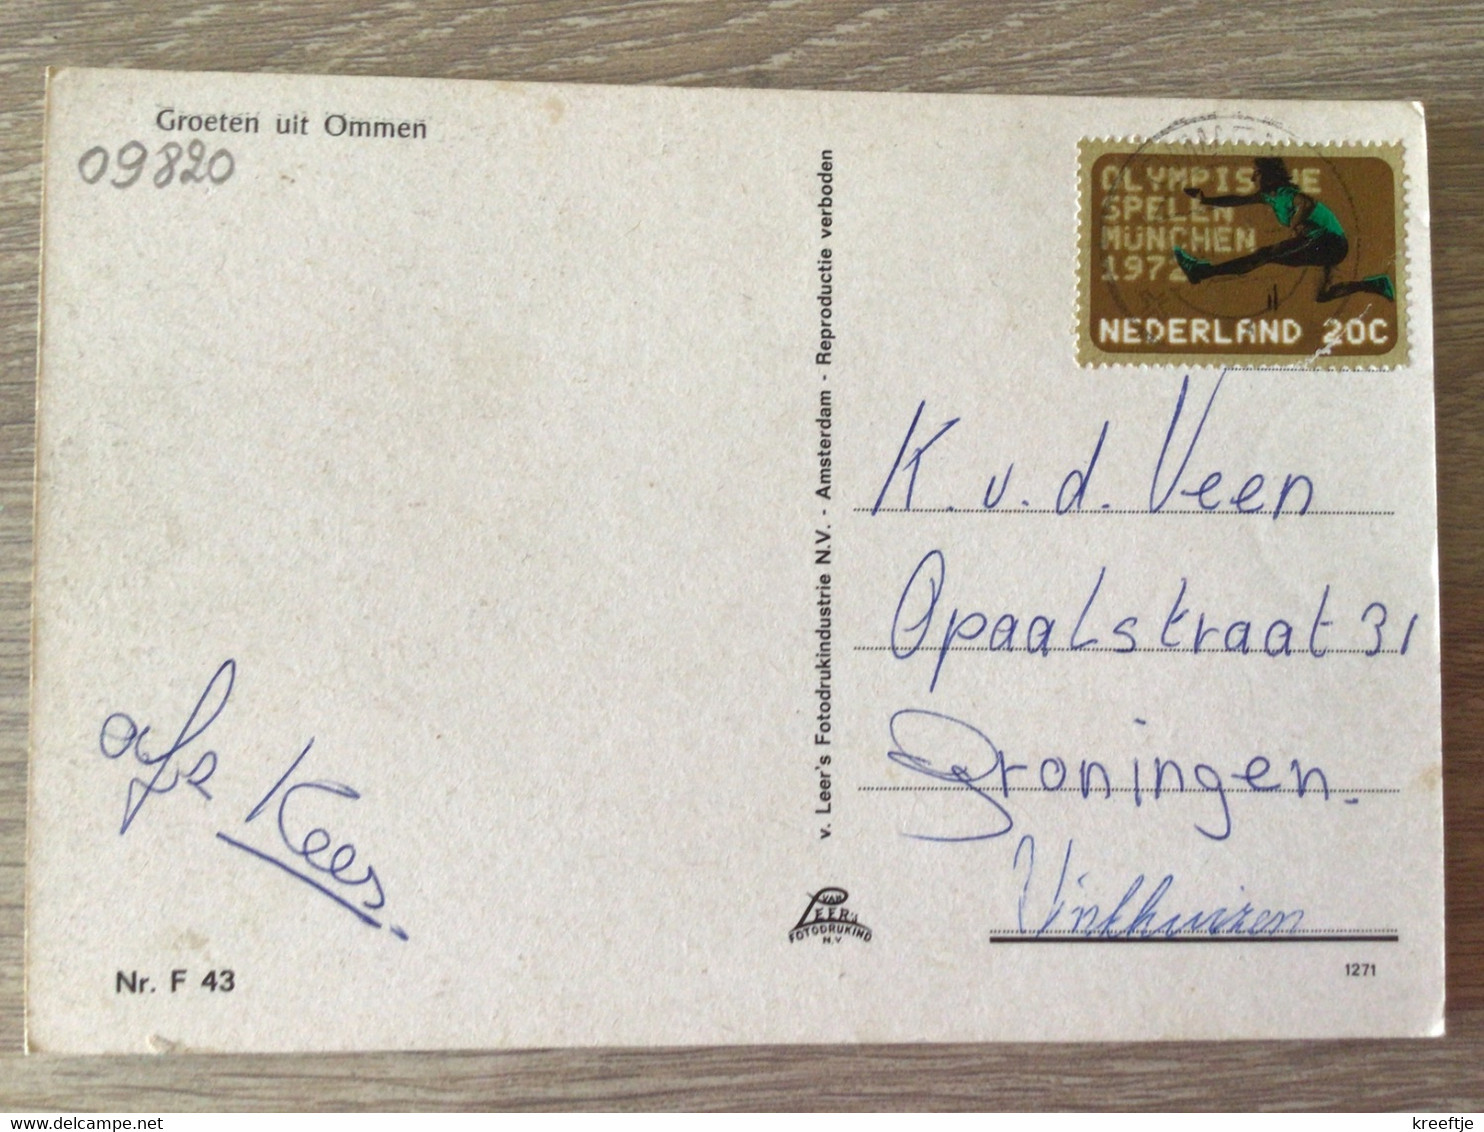 Groeten uit Ommen
09820
OLYMPISCHE
SPELEN
MÜNCHEN
1972
NEDERLAND 20C
v. Leer's Fotodrukindustrie N.V. - Amsterdam - Reproductie verboden
K. v. d. Veen
Opaalstraat 31
Groningen.
Vinkhuizen
afz
Kees.
VAN
LEER's
FOTODRUKIND
N.V.
Nr. F 43
1271
kreeftje